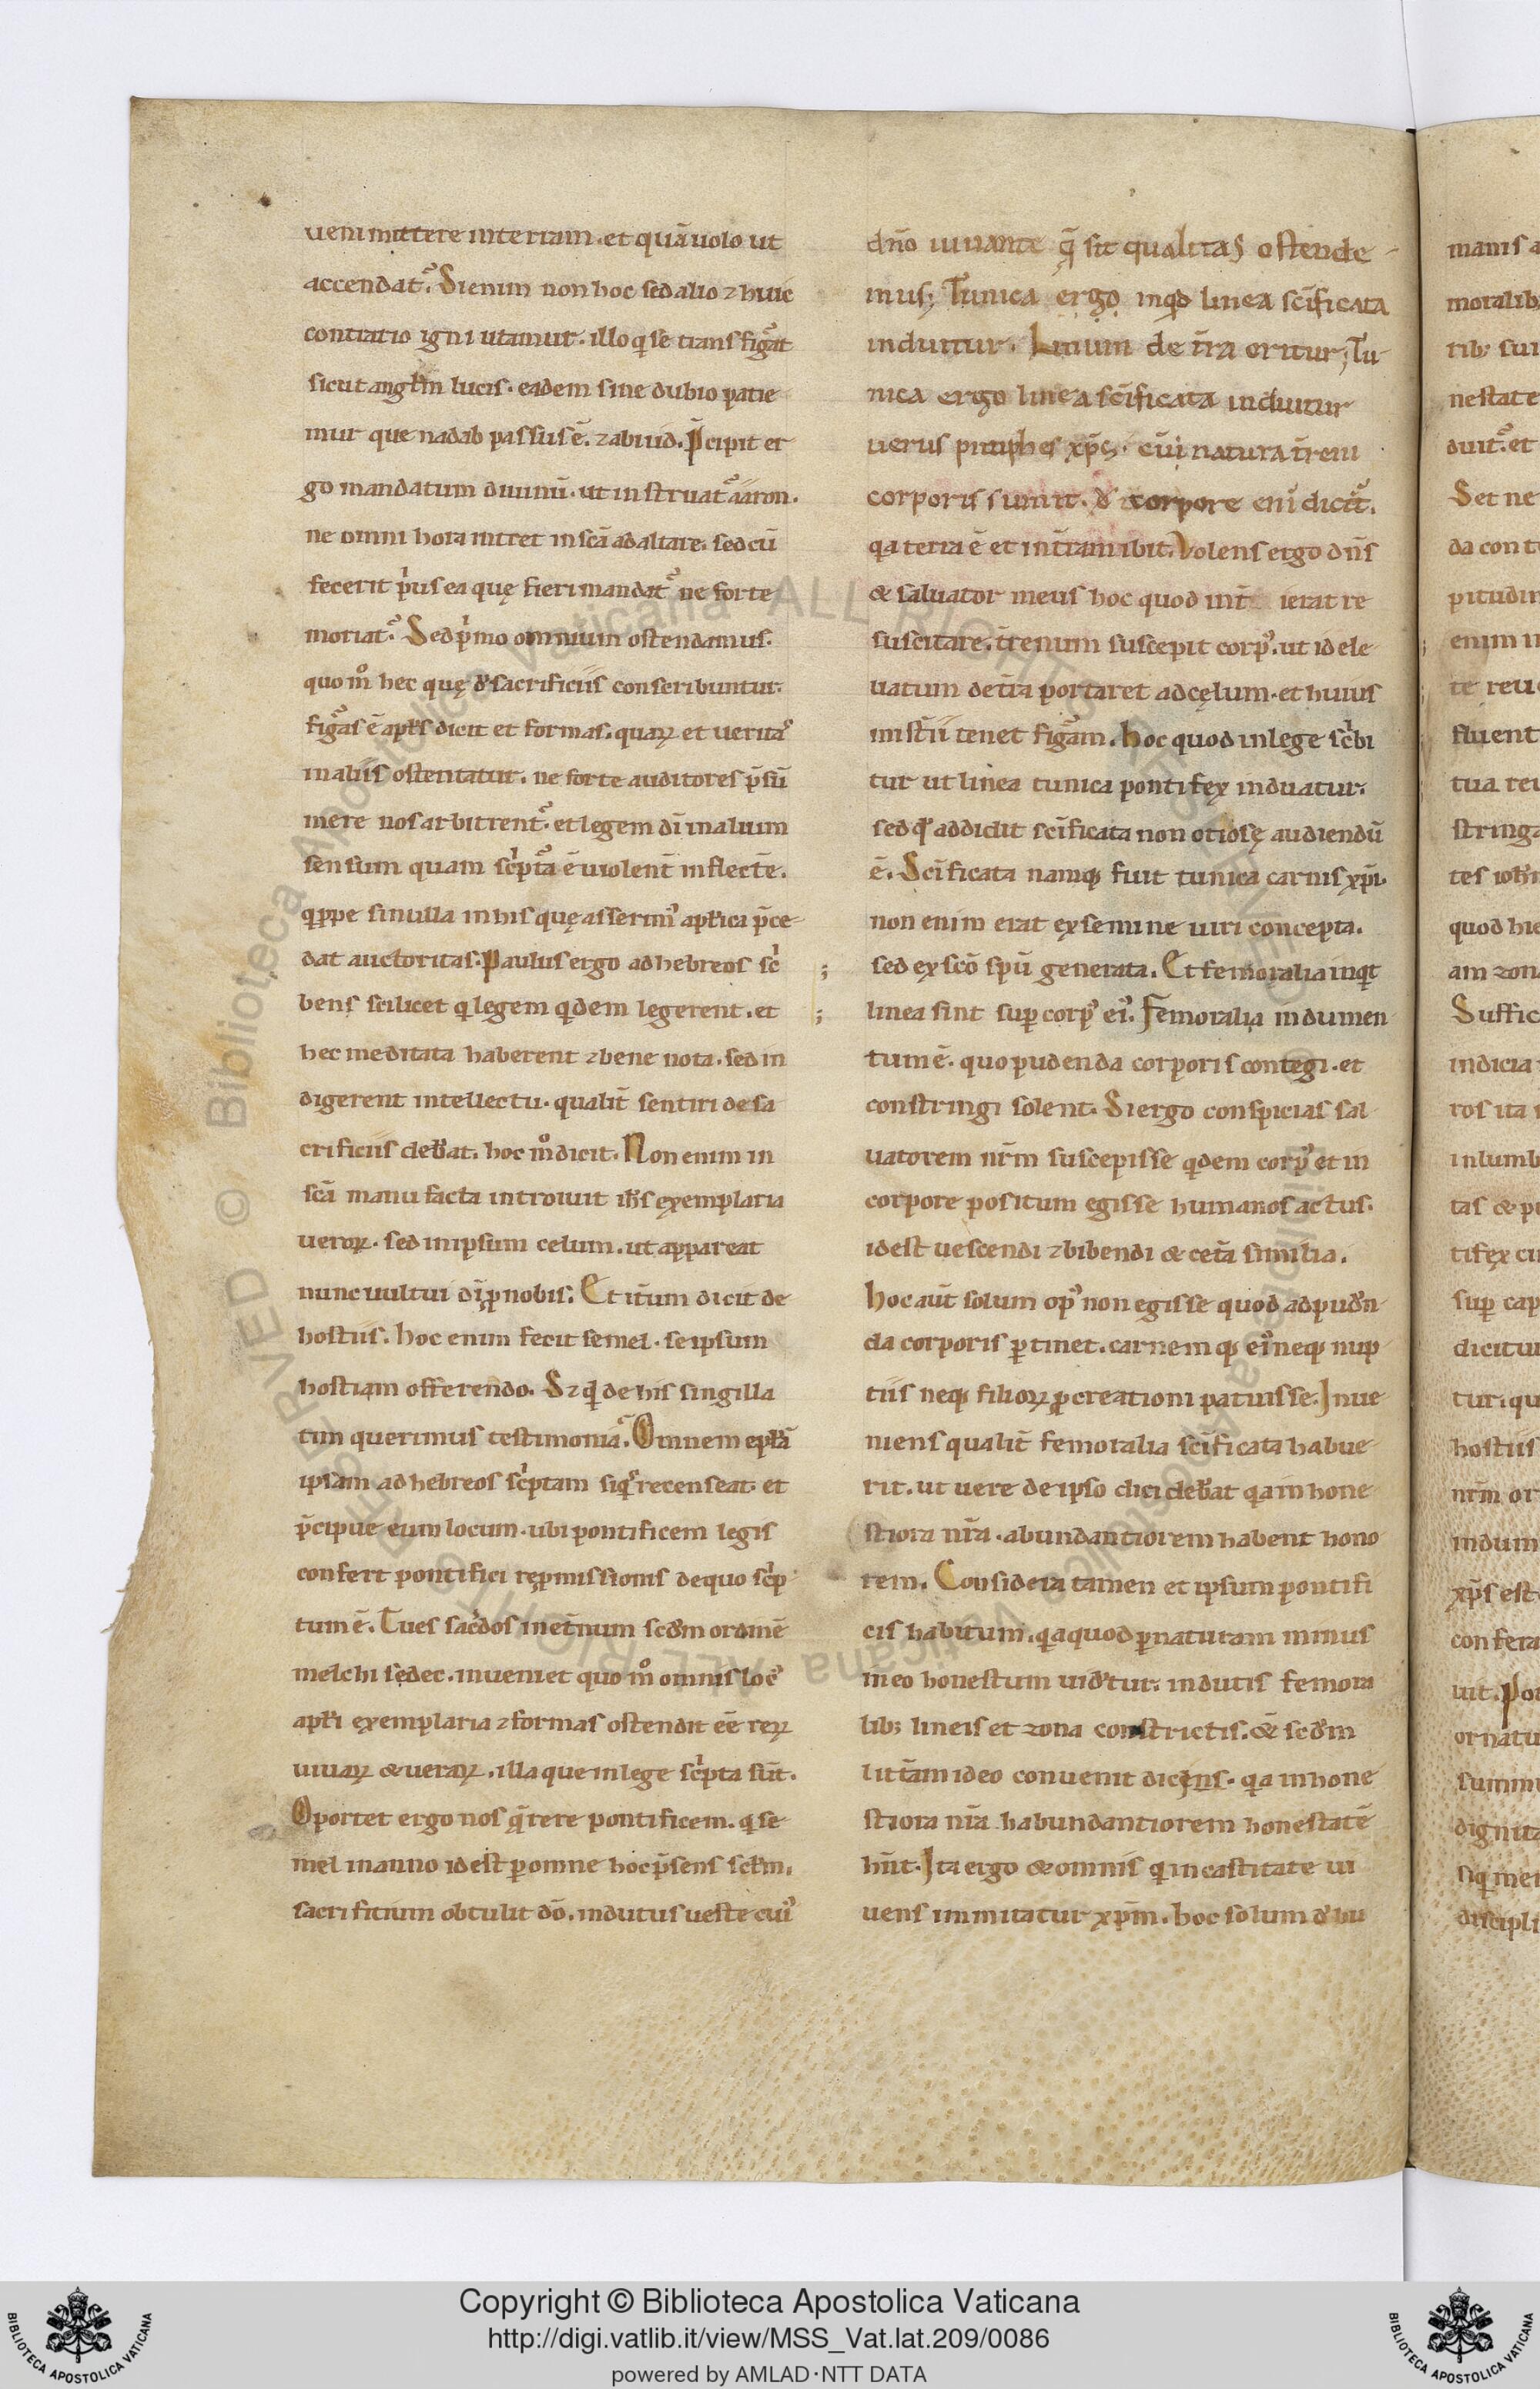 ueni mittere in terram. et quā uolo ut
accendat᷑. Si enim non hoc sed alio ⁊ huic
contrario igni utamur. illo q̣ se transfigᷓat
sicut angłm lucis. eadem sine dubio patie
mur que nadab passus ē. ⁊ abiud. P̄cipit er
go mandatum diuinū. ut instruat᷑ aaron.
ne omni hora intret in scā ad altare. sed cū
fecerit pͥus ea quę fieri mandat᷑ ne forte
moriat᷑. Sed pͥmo omnium ostendamus.
quo mͦ hec quę de sacrificiis conscribuntur.
figᷓas ē apłs dicit et formas. quaꝝ et ueritas
in aliis ostentatur. ne forte auditores p̄sū
mere nos arbitrent᷑. et legem dī in alium
sensum quam scͥpta ē uiolent̄ inflecte̅.
q̣ppe si nulla in his quę asserimꝰ apłica p̄ce
dat auctoritas. Paulus ergo ad hebreos scͥ
bens scilicet q̣ legem q̣dem legerent. et
hec meditata haberent ⁊ bene nota. sed in
digerent intellectu. qualit̄ sentiri de sa
crificiis deb̄at. hoc mͦ dicit. Non enim in
scā manu facta introiuit ih̄s exemplaria
ueroꝝ. sed in ipsum celum. ut appareat
nunc uultui dī ꝓ nobis. Et it̄um dicit de
hostiis. hoc enim fecit semel. se ipsum
hostiam offerendo. S⁊ q̣d de his singilla
tim querimus testimonia. Omnem epłā
ipsam ad hebreos scͥptam siq̣s recenseat. et
p̄cipue eum locum. ubi pontificem legis
confert pontifici repmissionis de quo scͥp
tum ē. Tu es sac̄dos in et̄num scdm ordinē
melchisedec. inueniet quo mͦ omnis locꝰ
apłi exemplaria ⁊ formas ostendit eē reꝝ
uiuaꝝ & ueraꝝ. illa que in lege scͥpta sūt.
Oportet ergo nos q̄rere pontificem. q̣ se
mel in anno id est ꝑ omne hoc p̄sens scłm.
sacrificium obtulit dō. indutus ueste cuiꝰ
dn̄o iuuante q̄ sit qualitas ostende
mus; Tunica ergo inq̣d linea scīficata
induitur. Linum de t̄ra oritur; Tu
nica ergo linea scīficata induitur
uerus pontifex xp̄s. cū natura t̄reni
corporis sumit. de corpore eni̅ dicit᷑.
q̣a terra ē et in t̄ram ibit. Volens ergo dn̄s
& saluator meus hoc quod in t̄ ierat re
suscitare. t̄renum suscepit corpꝰ. ut id ele
uatum de t̄ra portaret ad cęlum. et huius
mist̄ii tenet figᷓam. hoc quod in lege scͥbi
tur ut linea tunica pontifex induatur.
sed q̣d addidit scīficata non otiosę audiendū
ē. Scīficata namq; fuit tunica carnis xp̄i.
non enim erat ex semine uiri concepta.
sed ex scō spū generata. Et femoralia inq̣t
linea sint suꝑ corpꝰ eiꝰ. Femoralia indumen
tum ē. quo pudenda corporis contegi. et
constringi solent. Si ergo conspicias sal
uatorem nr̄m suscepisse q̣dem corpꝰ et in
corpore positum egisse humanos actus.
id est uescendi ⁊ bibendi & cet̄a similia.
hoc aūt solum opꝰ non egisse quod ad pud̄n
da corporis ꝑtinet. carnem q; eiꝰ neq; nup
tiis neq; filioꝝ ꝓcreationi patuisse. Inue
niens qualit̄ femoralia scīficata habue
rit. ut uere de ipso dici deb̄at q̣a inhone
stiora nr̄a. abundantiorem habent hono
rem. Considera tamen et ipsum pontifi
cis habitum. q̣a quod ꝑ naturam minus
in eo honestum uid̄tur. indutis femora
lib; lineis et zona constrictis. & scdm
litt̄am ideo conuenit dicens. q̣a inhone
stiora nr̄a habundantiorem honestatē
hn̄t. Ita ergo & omnis q̣ in castitate ui
uens immitatur xp̄m. hoc solum d̄bu
manis
moralib;
rib; sui
nestate
duit᷑. et
Set ne
da cont
pitudin
enim
te reu
fluent
tua reu
stringa
tes ioh̄
quod hie
am zon
Suffic
indicia
ros ita
in lumb
tas & p
tifex
suꝑ cap
dicitu
tur. qu
hostiis
nr̄m or
indum
xp̄s est
confera
uit. Po
ornatu
summ
dignita
siq̣ me
discipli
Copyright © Biblioteca Apostolica Vaticana
http://digi.vatlib.it/view/MSS_Vat.lat.209/0086
powered by AMLAD·NTT DATA